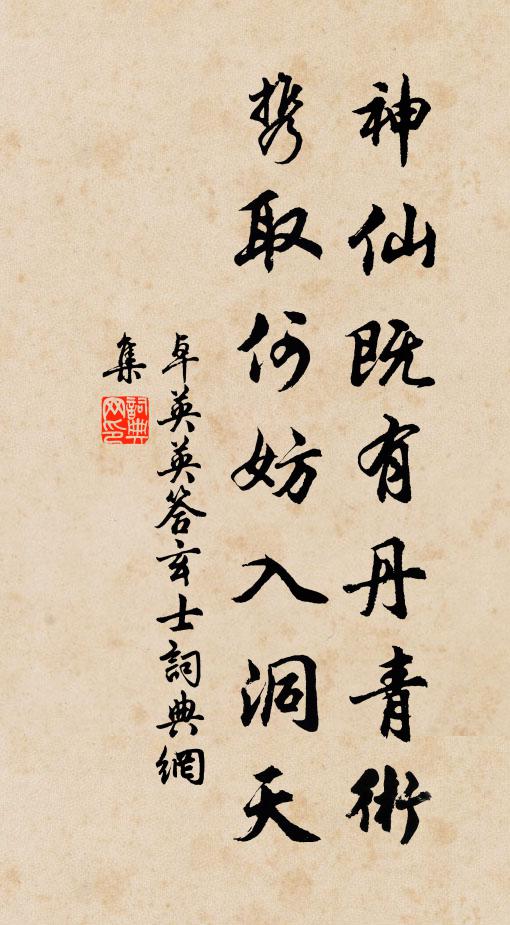 神仙既有丹青術
携取何妨入洞天
卓英英答玄士詞典網
集
詞典网印